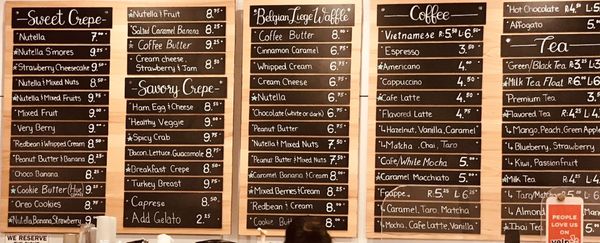 Sweet Crepe
Nutella 7.00
Nutella S'mores 9.25
Strawberry Cheesecake 9.50
Nutella and Mixed Nuts 8.25
Nutella & Mixed Fruits 9.75
Mixed Fruit 9.00
Very Berry 9.00
Redbean & Whipped Cream 8.25
Peanut Butter & Banana 8.25
Choco Banana 8.25
Cookie Butter 9.25
Oreo Cookies 8.75
Nutella, Banana, Strawberry 9.75
Nutella & Fruit 8.75
Salted Caramel Banana 8.25
Cookie Butter 9.25
Cream cheese,
Strawberry & Jam 8.50
Savory Crepe
Ham, Egg & Cheese 8.50
Healthy Veggie 9.00
Spicy Crab 9.75
Bacon, Lettuce, Guacamole 8.75
Breakfast Crepe 8.50
Turkey Breast 9.25
Caprese 8.50
Add Gelato 2.25
Belgian Liege Waffle
Cookie Butter 8.00
Cinnamon Caramel 6.75
Whipped Cream 6.75
Cream Cheese 6.75
Nutella 6.75
Chocolate (white or dark) 6.75
Peanut Butter 6.75
Nutella & Mixed Nuts 7.50
Peanut Butter & Mixed Nuts 7.50
Banana & Cream 8.00
Mixed Berries & Cream 8.25
Redbean & Cream 8.00
Cookie Butter 8.00
Coffee
Vietnamese R 4.75 L 5.75
Espresso 3.50
Americano 4.00
Cappuccino 4.50
Cafe Latte 4.50
Flavored Latte 4.75
Hazelnut, Vanilla, Caramel
Matcha, Chai, Taro
Cafe/White Mocha 5.00
Caramel Macchiato 5.00
Frappe R 5.25 L 6.25
Caramel, Taro Matcha
Mocha, Cafe Latte, Vanilla
Hot Chocolate R 4.50 L 5
Affogato 5
Tea
Green/Black Tea R 3.25 L
Milk Tea Float R 6.00 L
Premium Tea 3
Flavored Tea R 4.25 L
Mango, Peach, Green Apple
Blueberry, Strawberry
Kiwi, PassionFruit
Milk Tea R 4.75 L
Taro, Matcha
Almond, Thai
Mango
WE RESERVE
PEOPLE
LOVE US
ON
yelp